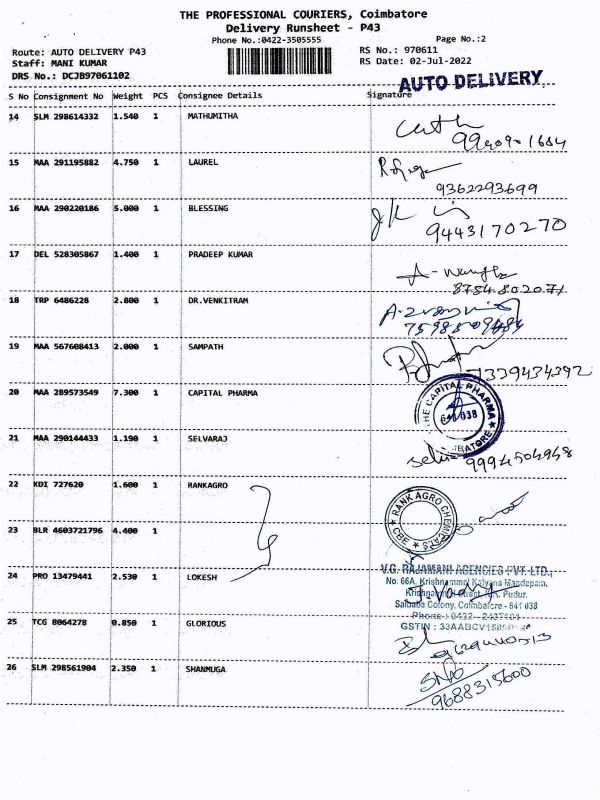 THE PROFESSIONAL COURIERS, Coimbatore
Delivery Runsheet - P43
Phone No.:0422-3505555
Page No.:2
Route: AUTO DELIVERY P43
RS No.: 970611
Staff: MANI KUMAR
RS Date: 02-Jul-2022
DRS No.: DCJB97061102
AUTO DELIVERY
S No Consignment No Weight PCS Consignee Details Signature
14 SLM 298614332 1.540 1 MATHUMITHA
15 MAA 291195882 4.750 1 LAUREL
9362293699
16 MAA 290220186 5.000 1 BLESSING
9443170270
17 DEL 528305867 1.400 1 PRADEEP KUMAR
8754802071
18 TRP 6486228 2.800 1 DR.VENKITRAM
19 MAA 567608413 2.000 1 SAMPATH
7339434392
20 MAA 289573549 7.300 1 CAPITAL PHARMA
THE CAPITAL PHARMA
641 038
COIMBATORE
21 MAA 290144433 1.190 1 SELVARAJ
9994504948
22 KDI 727620 1.600 1 RANKAGRO
RANK AGRO CHEMICALS
CBE
23 BLR 4603721796 4.400 1
24 PRO 13479441 2.530 1 LOKESH
V.G. RAJAMANI AGENCIES PVT. LTD.,
No. 66A, Krishnammal Kalyana Mandapam,
Krishnammal Street, K.K. Pudur,
Saibaba Colony, Coimbatore - 641 038
Phone : 0422 - 2437101
GSTIN : 33AABCV
25 TCG 8064278 0.850 1 GLORIOUS
26 SLM 298561904 2.350 1 SHANMUGA
9688315600